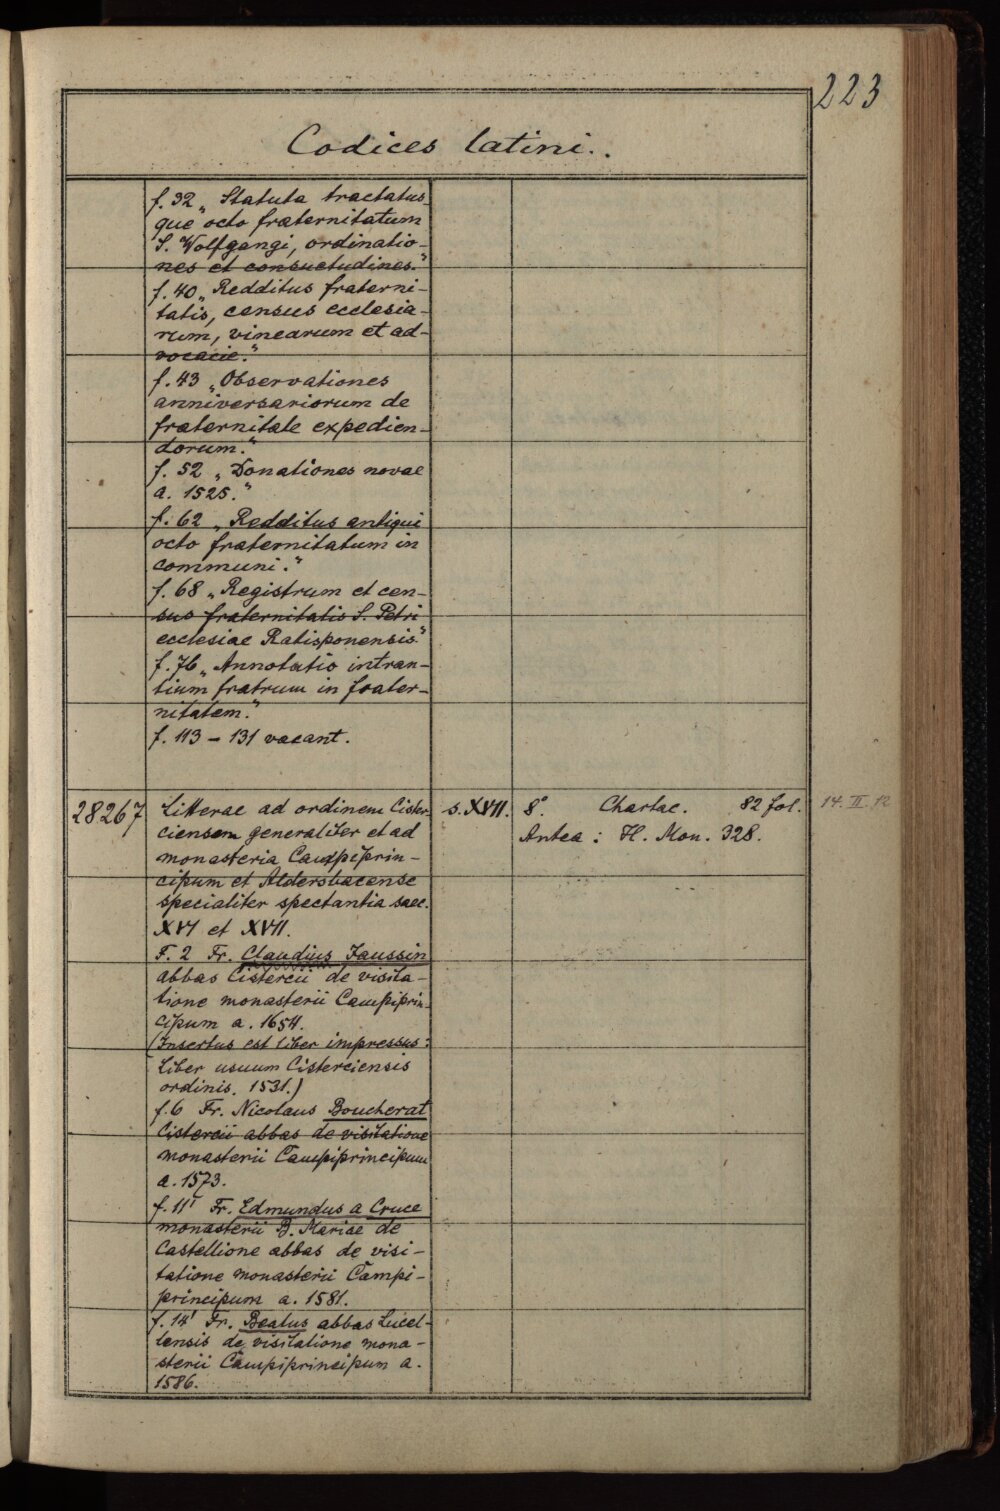 223
Codices latini.
f. 32 „Statuta tractatus
que octo fraternitatum
S. Wolfgangi, ordinatio-
nes et consuetudines.“
f. 40 „Redditus fraterni-
tatis, census ecclesia-
rum, vinearum et ad-
vocacie.“
f. 43 „Observationes
anniversariorum de
fraternitate expedien-
dorum.“
f. 52 „Donationes novae
a. 1525.“
f. 62 „Redditus antiqui
octo fraternitatum in
communi.“
f. 68 „Registrum et cen-
sus fraternitatis S. Petri
ecclesiae Ratisponensis.“
f. 76 „Annotatio intran-
tium fratrum in frater-
nitatem.“
f. 113 – 131 vacant.
28267 Litterae ad ordinem Cister- s. XVII. 8° Chartac. 82 fol. 14. II. 12
ciensem generaliter et ad Antea: H. Mon. 328.
monasteria Campiprin-
cipum et Aldersbacense
specialiter spectantia saec.
XVI et XVII.
F. 2 Fr. Claudius Jaussin
abbas Cistercii de visita-
tione monasterii Campiprin-
cipum a. 1654.
(Insertus est liber impressus:
Liber usuum Cisterciensis
ordinis. 1531.)
f. 6 Fr. Nicolaus Boucherat
Cistercii abbas de visitatione
monasterii Campiprincipum
a. 1573.
f. 11' Fr. Edmundus a Cruce
monasterii B. Mariae de
Castellione abbas de visi-
tatione monasterii Campi-
principum a. 1581.
f. 14' Fr. Beatus abbas Lucel-
lensis de visitatione mona-
sterii Campiprincipum a.
1586.